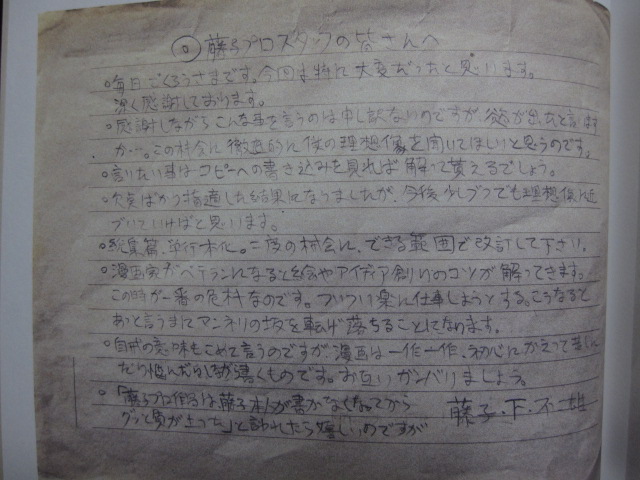 ◎藤子プロスタッフの皆さんへ
○毎日ごくろうさまです。今回は特に大変だったと思います。
深く感謝しております。
○感謝しながらこんな事を言うのは申し訳ないのですが、
か…。この機会に徹底的に僕の理想像を聞いてほしいと思うのです。
○言いたい事はコピーへの書き込みを見れば解って貰えるでしょう。
○欠点ばかり指適した結果になりましたが、今後少しづつでも理想像に近
づいていければと思います。
○総集篇、単行本化。二度の機会に、できる範囲で改訂して下さい。
○漫画家がベテランになると絵やアイディア創りのコツが解ってきます。
この時が一番の危機なのです。ついつい楽に仕事しようとする。こうなると
あっと言うまにマンネリの坂を転げ落ちることになります。
○自戒の意味もこめて言うのですが、漫画は一作一作、初心にかえって
たり悩んだりしながら書くものです。お互いガンバリましょう。
○「藤子プロ作品は藤子本人が書かなくなってから
グッと質が上った」と言われたら嬉しいのですが
藤子・F・不二雄